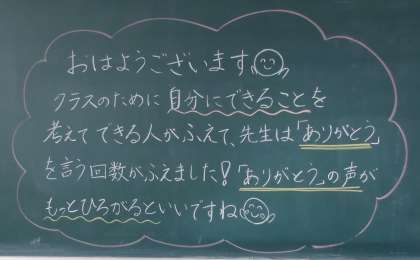 おはようございます
クラスのために自分にできることを
考えてできる人がふえて、先生は「ありがとう」
を言う回数がふえました!「ありがとう」の声が
もっとひろがるといいですね